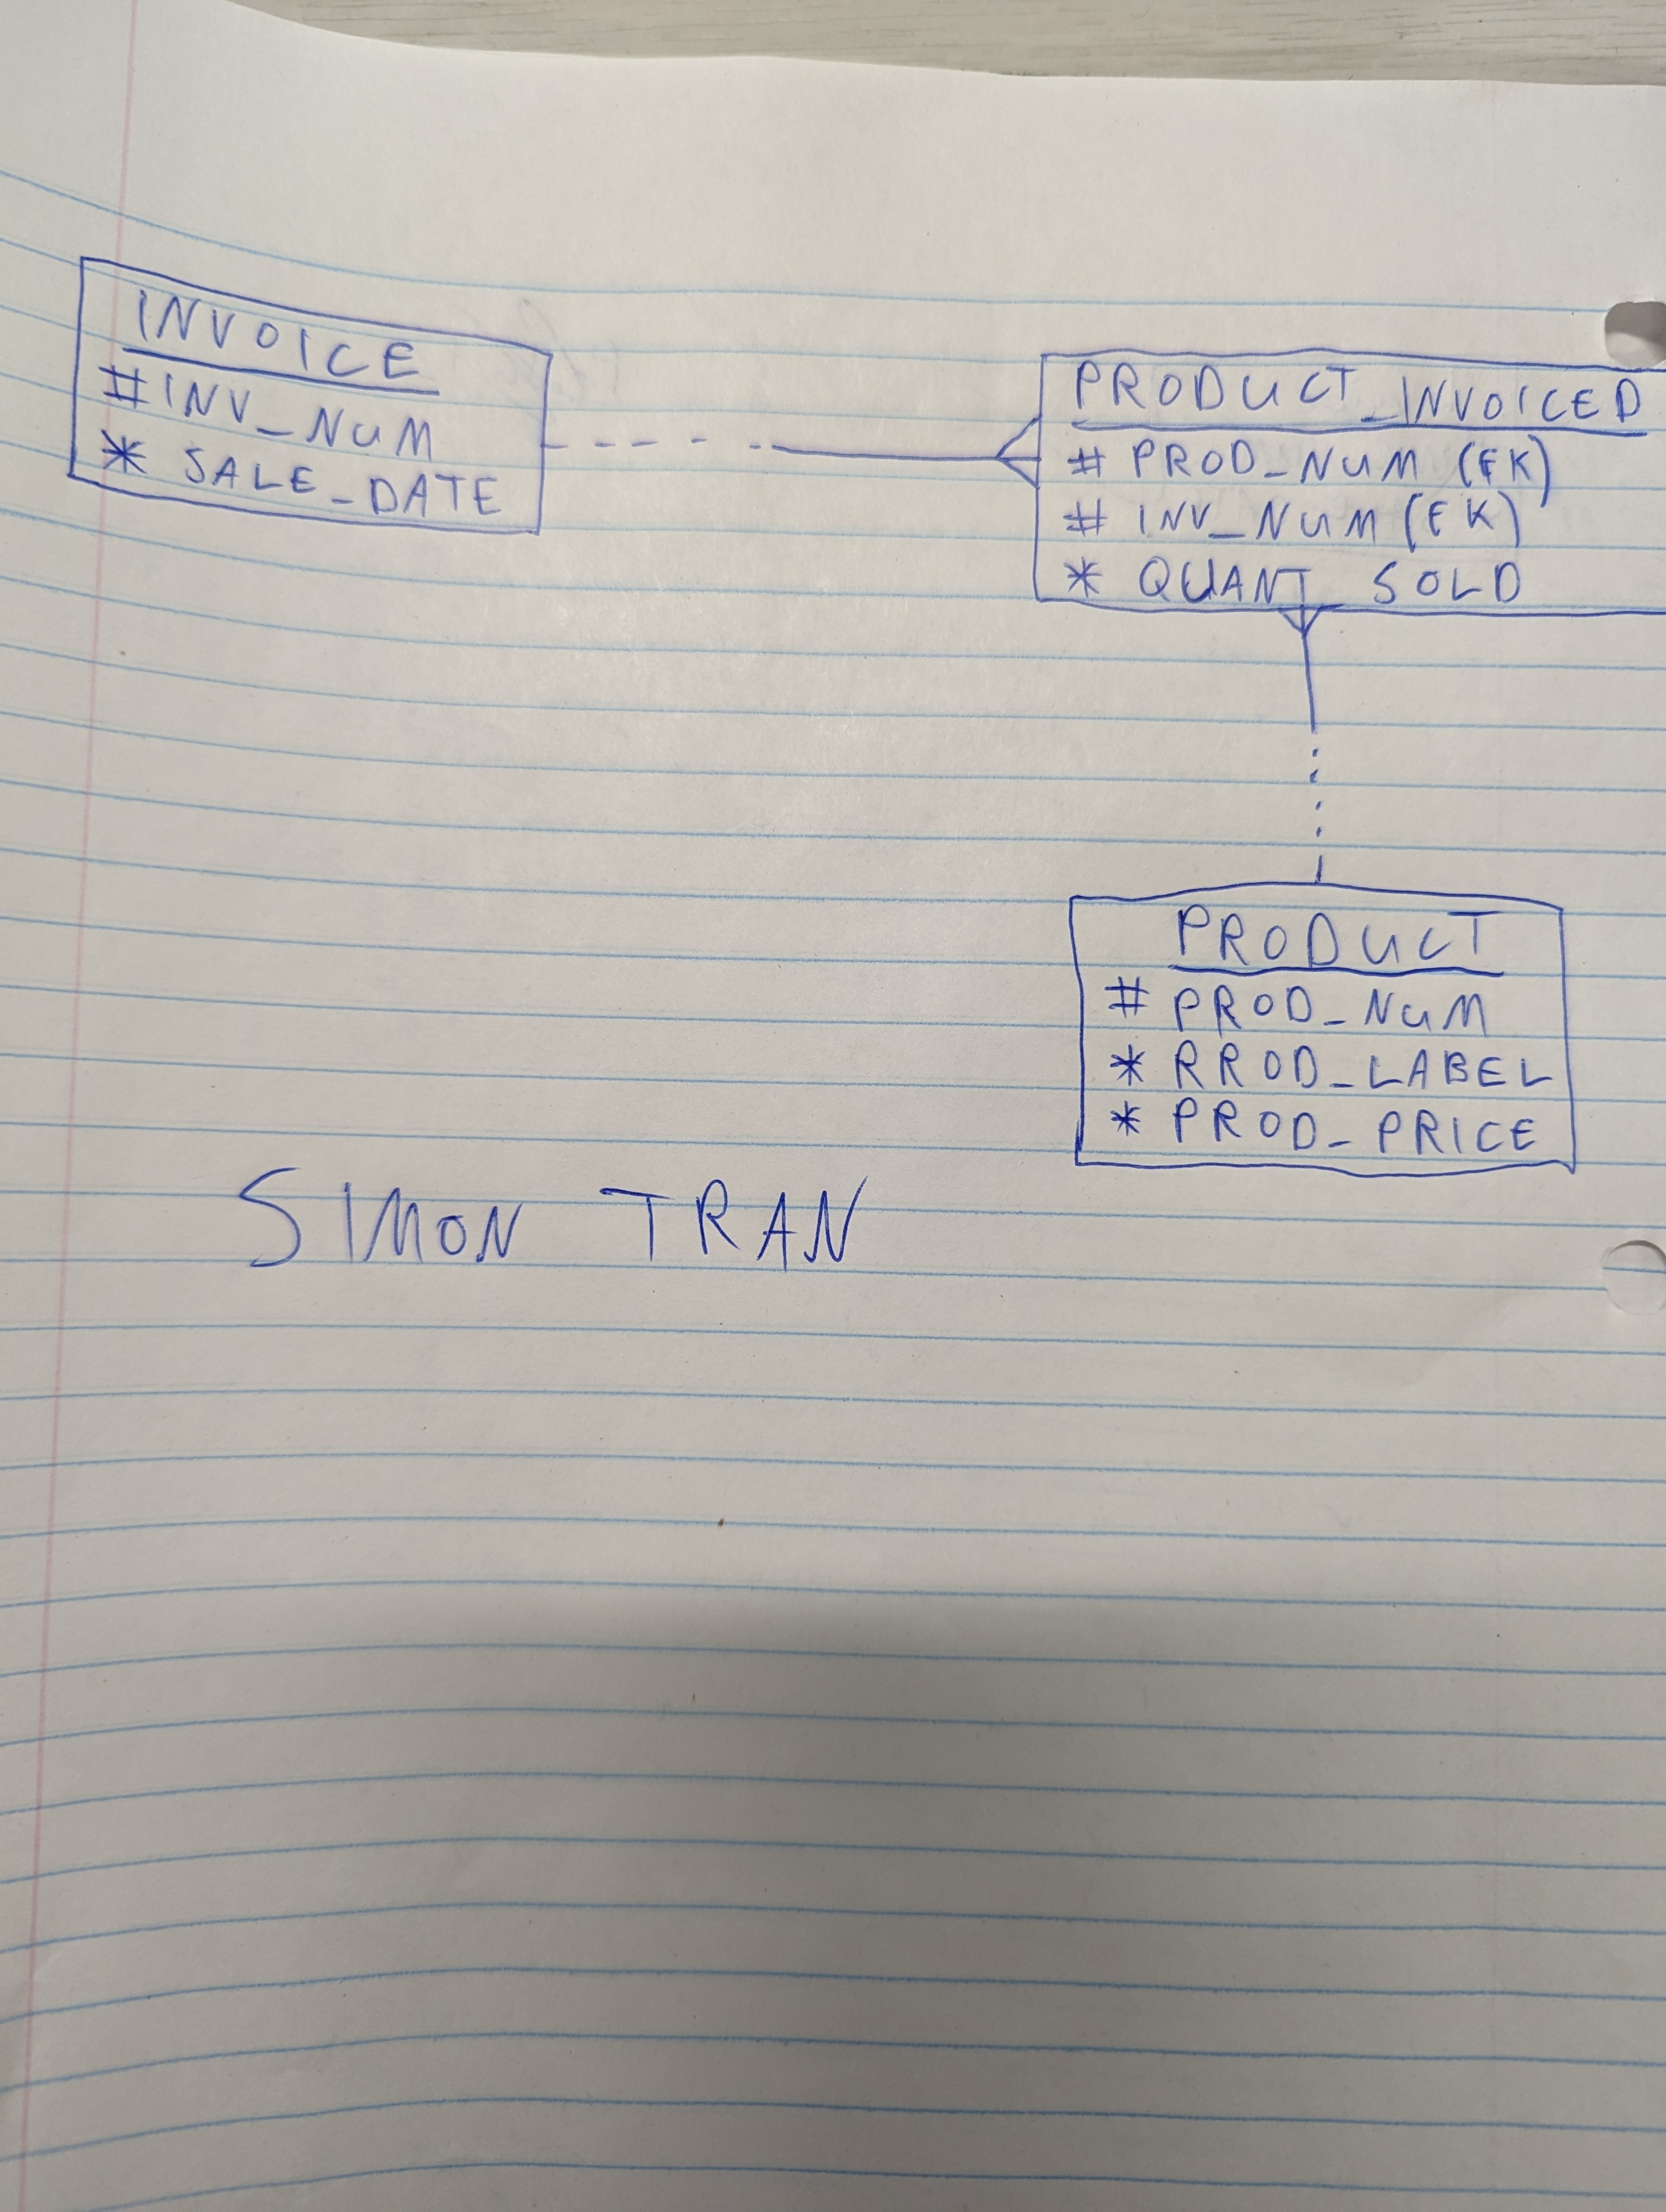 INVOICE
#INV_NUM
* SALE_DATE
PRODUCT_INVOICED
# PROD_NUM (FK)
# INV_NUM (FK)
* QUANT_SOLD
PRODUCT
# PROD_NUM
* RROD_LABEL
* PROD_PRICE
SIMON TRAN